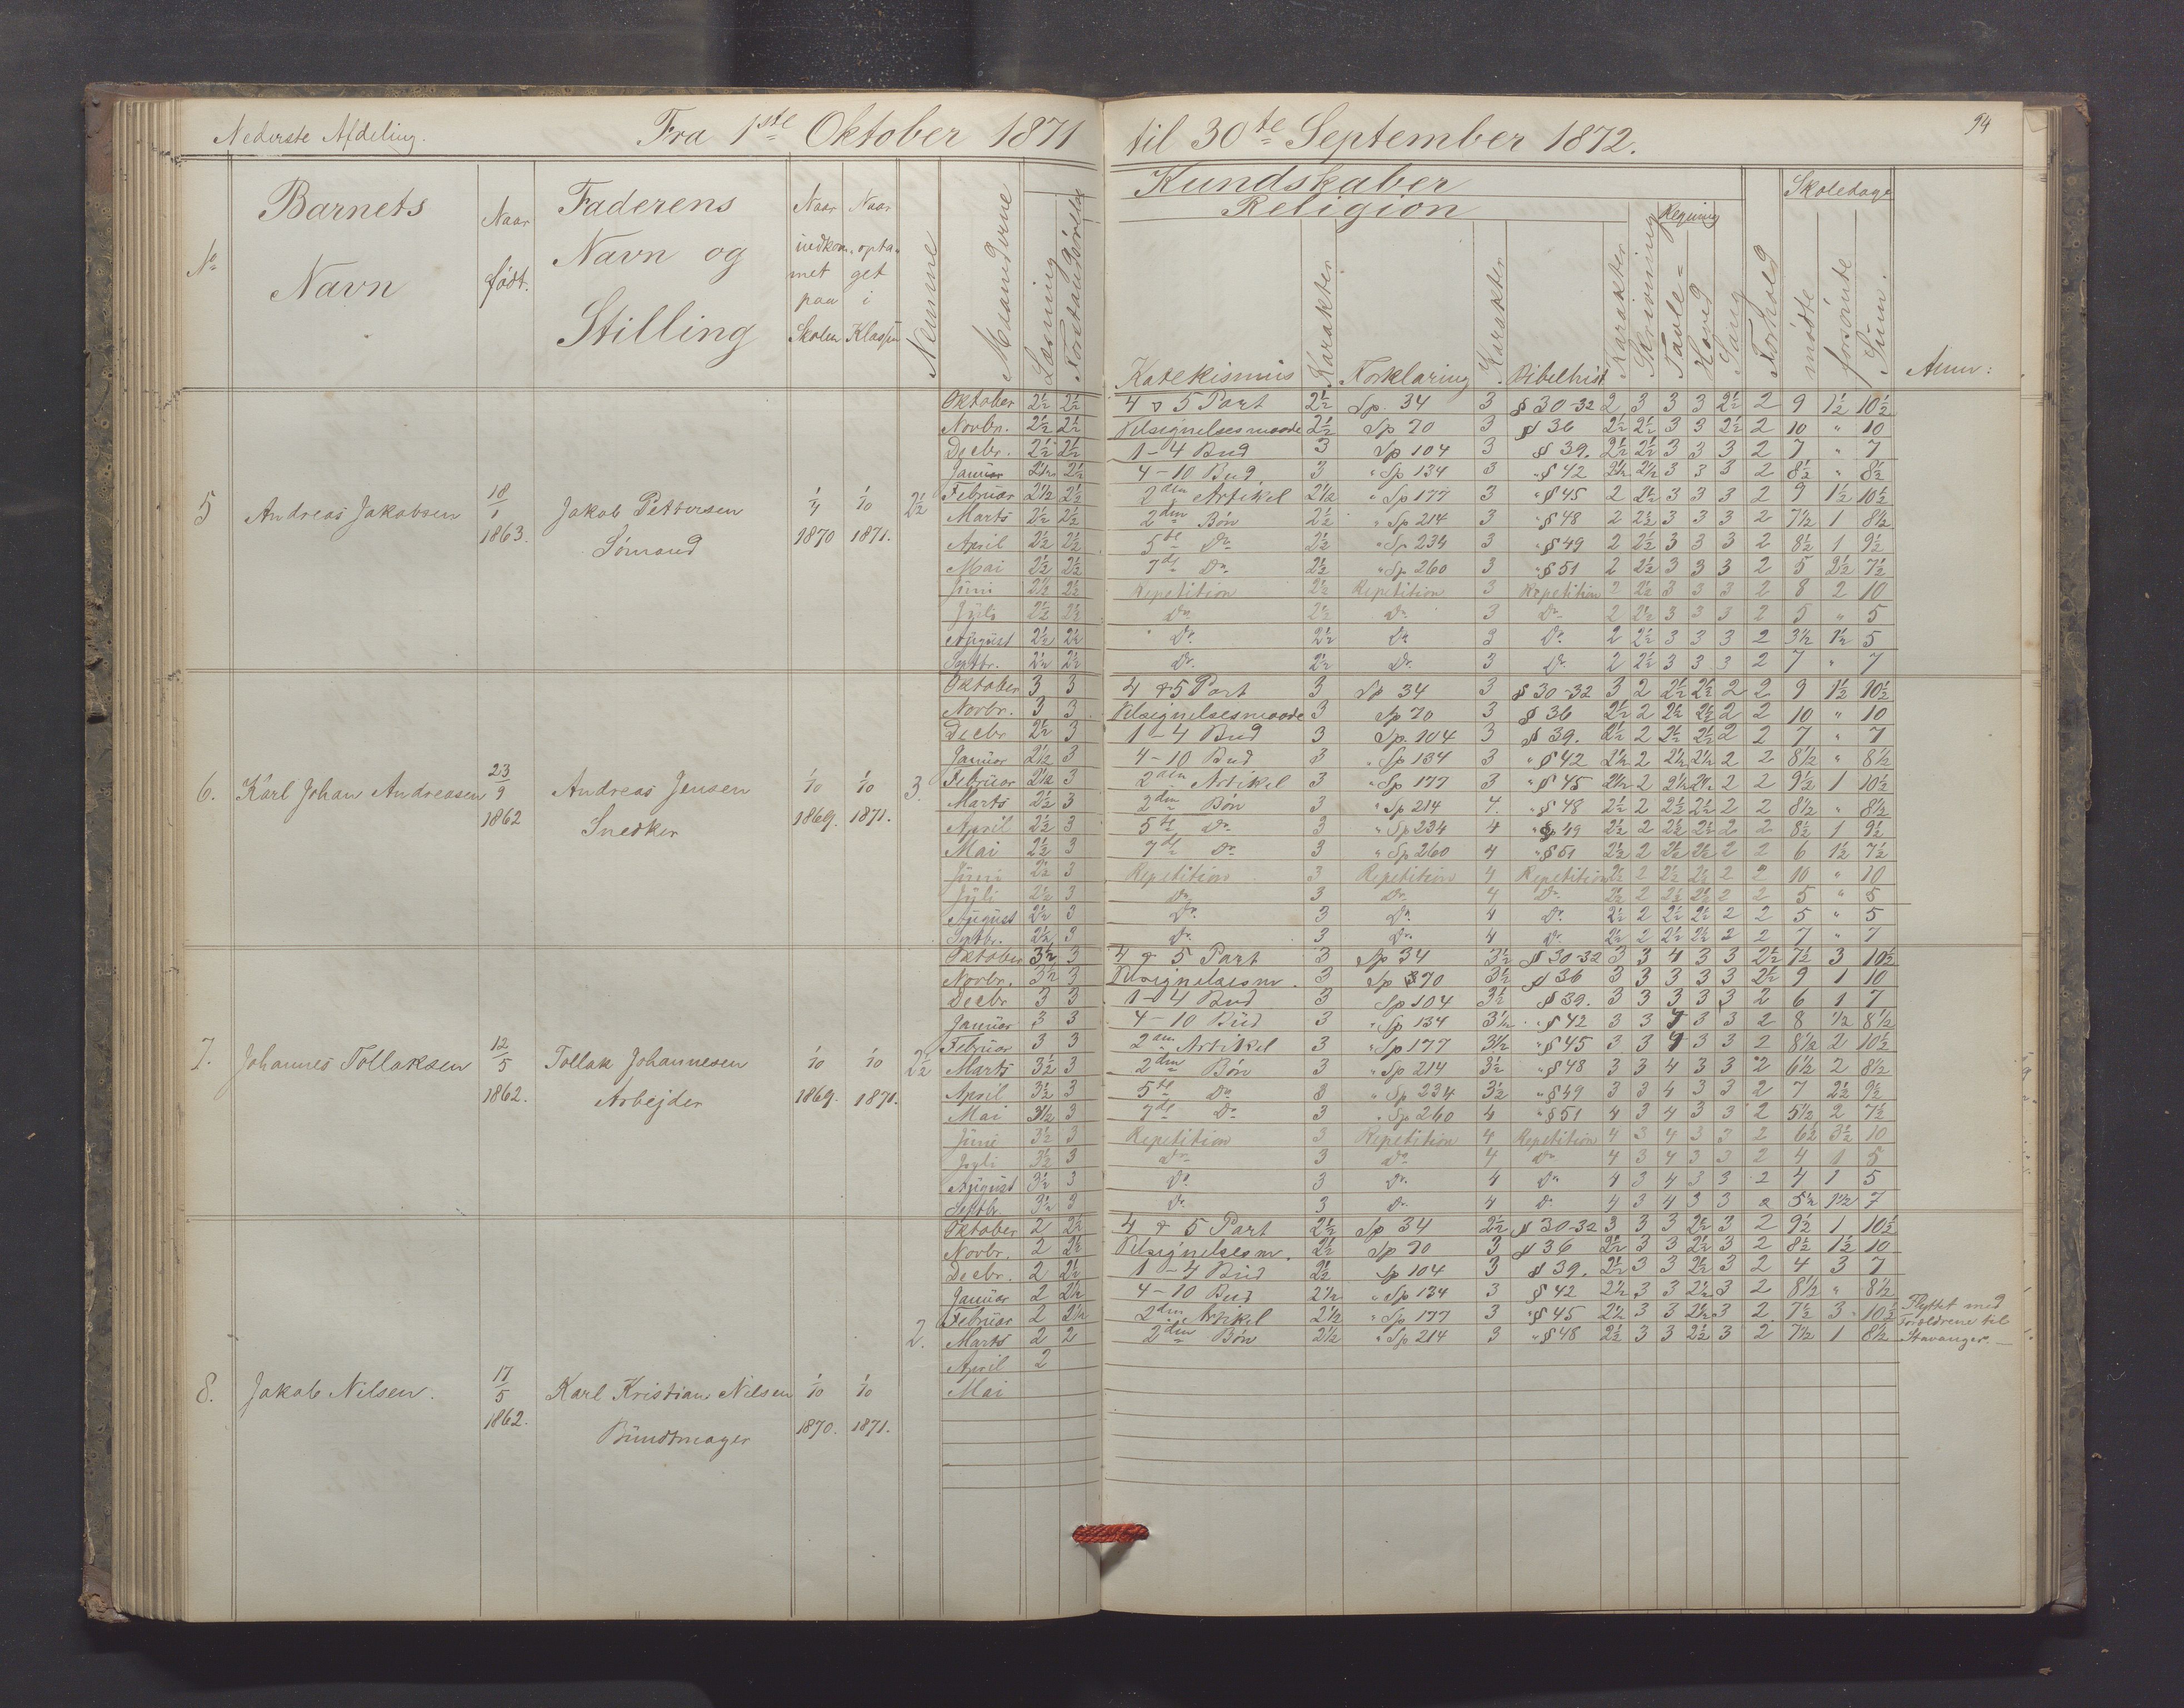 Nederste Afdeling. Fra 1ste Oktober 1871 til 30te September 1872. 94
No Barnets Navn Naar født. Faderens Navn og Stilling Naar indkommet paa Skolen Naar optaget i Klassen Nemme Maanederne Læsning Forstandsøvelse
Kundskaber Skoledage
Religion Regning
Katekismus Karakter Forklaring Karakter Bibelhist. Karakter Skrivning Tavle= Hoved Sang Forhold mødte forsømte Sum. Anm:
5 Andreas Jakobsen 18/1 1863. Jakob Pettersen Sømand 1/4 1870 1/10 1871. 2½
Oktober 2½ 2½ 4 & 5 Part 2½ Sp. 34 3 § 30-32 2 3 3 3 2½ 2 9 1½ 10½
Novbr. 2½ 2½ Velsignelsesmaade 2½ Sp 70 3 § 36 2½ 2½ 3 3 2½ 2 10 " 10
Decbr. 2½ 2½ 1-4 Bud 3 Sp 104 3 § 39. 2½ 2½ 3 3 3 2 7 " 7
Januar 2½ 2½ 4-10 Bud 3 " Sp 134 3 " § 42 2½ 2½ 3 3 3 2 8½ " 8½
Februar 2½ 2½ 2den Artikel 2½ " Sp 177 3 " § 45 2 2½ 3 3 3 2 9 1½ 10½
Marts 2½ 2½ 2den Bøn 2½ " Sp 214 3 " § 48 2 2½ 3 3 3 2 7½ 1 8½
April 2½ 2½ 5te Do 2½ " Sp 234 3 " § 49 2 2½ 3 3 3 2 8½ 1 9½
Mai 2½ 2½ 7de Do 2½ " Sp 260 3 " § 51 2 2½ 3 3 3 2 5 2½ 7½
Juni 2½ 2½ Repetition 2½ Repetition 3 Repetition 2 2½ 3 3 3 2 8 2 10
Juli 2½ 2½ Do 2½ Do 3 Do 2 2½ 3 3 3 2 5 " 5
August 2½ 2½ Do 2½ Do 3 Do 2 2½ 3 3 3 2 3½ 1½ 5
Septbr. 2½ 2½ Do 2½ Do 3 Do 2 2½ 3 3 3 2 7 " 7
6. Karl Johan Andreasen 23/9 1862 Andreas Jensen Snedker 1/10 1869. 1/10 1871. 3.
Oktober 3 3 4 & 5 Part 3 Sp 34 3 § 30-32 3 2 2½ 2½ 2 2 9 1½ 10½
Novbr. 3 3 Velsignelsesmaade 3 Sp 70 3 § 36 2½ 2 2½ 2½ 2 2 10 " 10
Decbr 2½ 3 1-4 Bud 3 Sp. 104 3 § 39. 2½ 2 2½ 2½ 2 2 7 " 7
Januar 2½ 3 4-10 Bud 3 " Sp 134 3 " § 42 2½ 2 2½ 2½ 2 2 8½ " 8½
Februar 2½ 3 2den Artikel 3 " Sp 177 3 " § 45 2½ 2 2½ 2½ 2 2 9½ 1 10½
Marts 2½ 3 2den Bøn 3 " Sp 214 4. " § 48 2½ 2 2½ 2½ 2 2 8½ " 8½
April 2½ 3 5te Do 3 " Sp 234 4 " § 49 2½ 2 2½ 2½ 2 2 8½ 1 9½
Mai 2½ 3 7de Do 3 " Sp 260 4 " § 51 2½ 2 2½ 2½ 2 2 6 1½ 7½
Juni 2½ 3 Repetition 3 Repetition 4 Repetition 2½ 2 2½ 2½ 2 2 10 " 10
Juli 2½ 3 Do 3 Do 4 Do 2½ 2 2½ 2½ 2 2 5 " 5
August 2½ 3 Do 3 Do 4 Do 2½ 2 2½ 2½ 2 2 5 " 5
Septbr. 2½ 3 Do 3 Do 4 Do 2½ 2 2½ 2½ 2 2 7 " 7
7. Johannes Tollaksen 12/5 1862. Tollak Johannesen Arbejder 1/10 1869. 1/10 1871. 2½
Oktober 3½ 3 4 & 5 Part 3 Sp 34 3½ § 30-32 3 3 4 3 3 2½ 7½ 3 10½
Novbr. 3½ 3 Velsignelsesm. 3 Sp 70 3½ § 36 3 3 3 3 3 2½ 9 1 10
Decbr 3 3 1-4 Bud 3 Sp 104 3½ § 39. 3 3 3 3 3 2 6 1 7
Januar 3 3 4-10 Bud 3 " Sp 134 3½ " § 42 3 3 4 3 3 2 8 ½ 8½
Februar 3 3 2den Artikel 3 " Sp 177 3½ " § 45 3 3 4 3 3 2 8½ 2 10½
Marts 3½ 3 2den Bøn 3 " Sp 214 3½ " § 48 3 3 4 3 3 2 6½ 2 8½
April 3½ 3 5te Do 3 " Sp 234 3½ " § 49 3 3 4 3 3 2 7 2½ 9½
Mai 3½ 3 7de Do 3 " Sp 260 4 " § 51 4 3 4 3 3 2 5½ 2 7½
Juni 3½ 3 Repetition 3 Repetition 4 Repetition 4 3 4 3 3 2 6½ 3½ 10
Juli 3½ 3 Do 3 Do 4 Do 4 3 4 3 3 2 4 1 5
August 3½ 3 Do 3 Do 4 Do 4 3 4 3 3 2 4 1 5
Septbr 3½ 3 Do 3 Do 4 Do 4 3 4 3 3 2 5½ 1½ 7
8. Jakob Nilsen. 17/5 1862. Karl Kristian Nilsen Bundtmager 1/10 1870. 1/10 1871. 2.
Oktober 2 2½ 4 & 5 Part 2½ Sp 34 2½ § 30-32 3 3 3 2½ 3 2 9½ 1 10½
Novbr. 2 2½ Velsignelsesm. 2½ Sp 70 3 § 36 2½ 3 3 2½ 3 2 8½ 1½ 10
Decbr. 2 2½ 1-4 Bud 2½ Sp 104 3 § 39. 2½ 3 3 2½ 3 2 4 3 7
Januar 2 2½ 4-10 Bud 2½ " Sp 134 3 § 42 2½ 3 3 2½ 3 2 8½ " 8½
Februar 2 2½ 2den Artikel 2½ " Sp 177 3 " § 45 2½ 3 3 2½ 3 2 7½ 3 10½ Flyttet med
Marts 2 2 2den Bøn 2½ " Sp 214 3 " § 48 2½ 3 3 2½ 3 2 7½ 1 8½ Forældrene til
April 2 Stavanger.
Mai